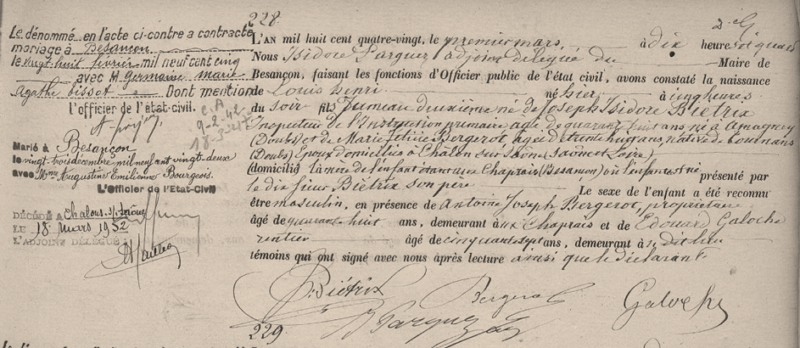 228
Le dénommé en l'acte ci-contre a contracté
mariage à Besançon
le vingt huit février mil neuf cent cinq
avec M. Germaine Marie
Agathe Bisset Dont mention
l'officier de l'état-civil.
C.A
9-2-42
Marié à Besançon
le vingt trois décembre mil neuf cent vingt deux
avec Mme Augustine Emilienne Bourgeois.
L'Officier de l'Etat-Civil
DÉCÉDÉ à Chalons s/ Saône
LE 18 mars 1952
L'ADJOINT DÉLÉGUÉ
2. G
L'AN mil huit cent quatre-vingt, le premier mars à dix heures
Nous Isidore Parguez adjoint délégué du Maire de
Besançon, faisant les fonctions d'Officier public de l'état civil, avons constaté la naissance
de Louis Henri né hier à cinq heures
du soir fils jumeau deuxième né de Joseph Isidore Biétrix
Inspecteur de l'Instruction primaire âgé de quarante huit ans né à Amagney
(Doubs) et de Marie Félicie Bergerot, âgée de trente huit ans, native de
(Doubs) Epoux domiciliés à Chalon sur Saône (Saône et Loire)
(domicilié) la mère de l'enfant étant aux Chaprais (Besançon) où l'enfant est né présenté par
le dit sieur Biétrix son père Le sexe de l'enfant a été reconnu
être masculin, en présence de Antoine Joseph Bergerot, propriétaire
âgé de quarante huit ans, demeurant aux Chaprais et de Edouard Galoche
rentier âgé de cinquante sept ans, demeurant à dit lieu
témoins qui ont signé avec nous après lecture ainsi que le déclarant
Biétrix Bergerot Galoche
Parguez
229